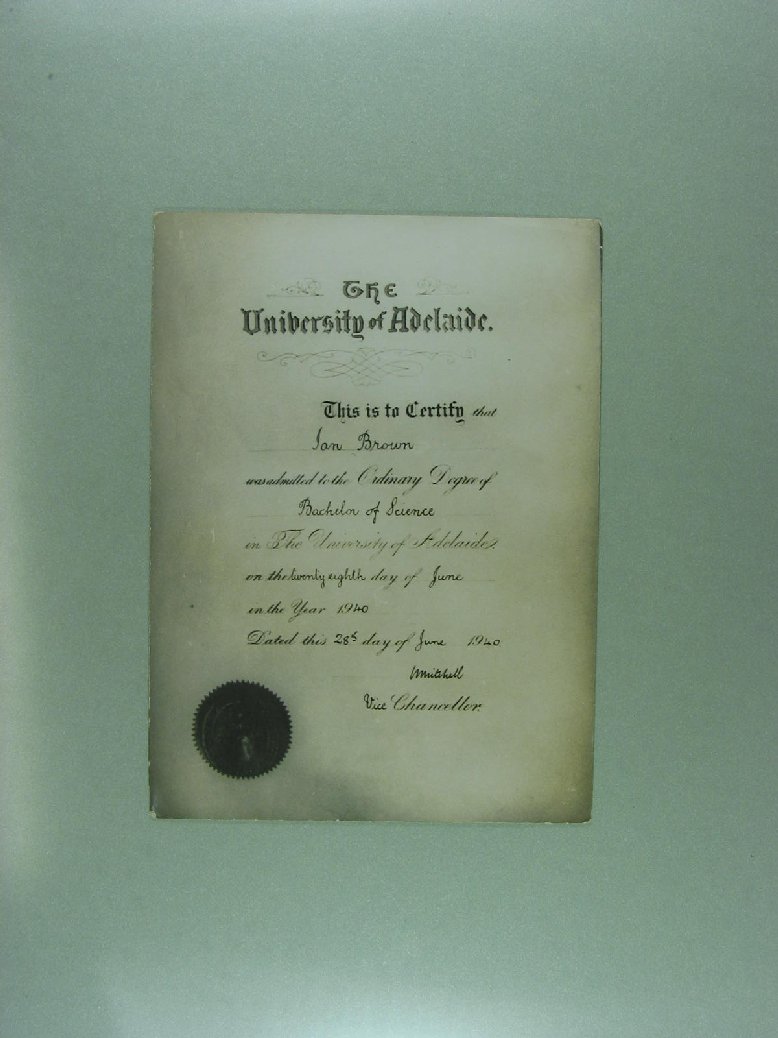 The
University of Adelaide.
This is to Certify that
Ian Brown
was admitted to the Ordinary Degree of
Bachelor of Science
in The University of Adelaide.
on the twenty eighth day of June
in the Year 1940
Dated this 28th day of June 1940
WMitchell
Vice Chancellor.